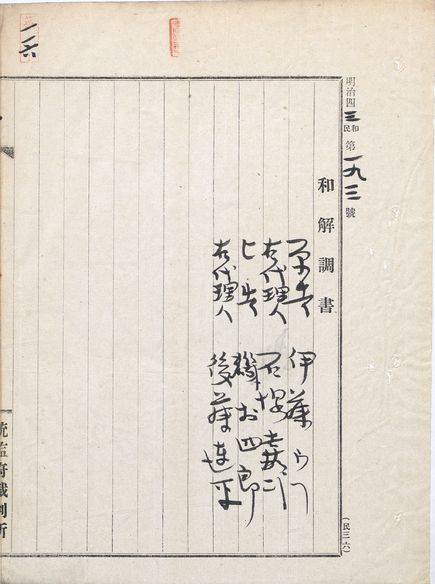 明治四三和民第一九三號
和解調書
原告 伊藤
右代理人 石塚
被告 磯部四郎
右代理人 後藤連平
(民三六)
一一六
統監府裁判所